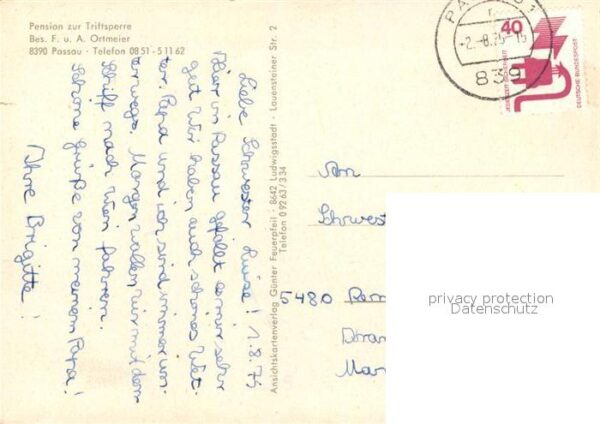 Pension zur Triftsperre
Bes. F. u. A. Ortmeier
8390 Passau - Telefon 08 51 - 5 11 62
Liebe Schwester Luise! 1.8.75
Hier in Passau gefällt es mir sehr
gut. Wir haben auch schönes Wet-
ter. Papa und ich sind immer un-
terwegs. Morgen wollen wir mit dem
Schiff nach Wien fahren.
Schöne Grüße von meinem Papa!
Ihre Brigitte!
Ansichtskartenverlag Günter Feuerpfeil · 8642 Ludwigsstadt · Lauensteiner Str. 2
Telefon 0 92 63 / 3 34
PASSAU 1
-2.-8.75-15
839
40
JEDERZEIT SICHERHEIT
DEUTSCHE BUNDESPOST
An
Schwest
5480 Rem
Mar
privacy protection
Datenschutz